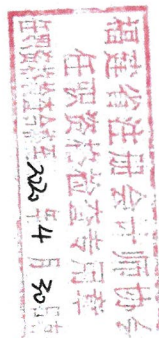 福建省注册会计师协会
任职资格检查专用章
任职资格检查合格至2020年4月30日止